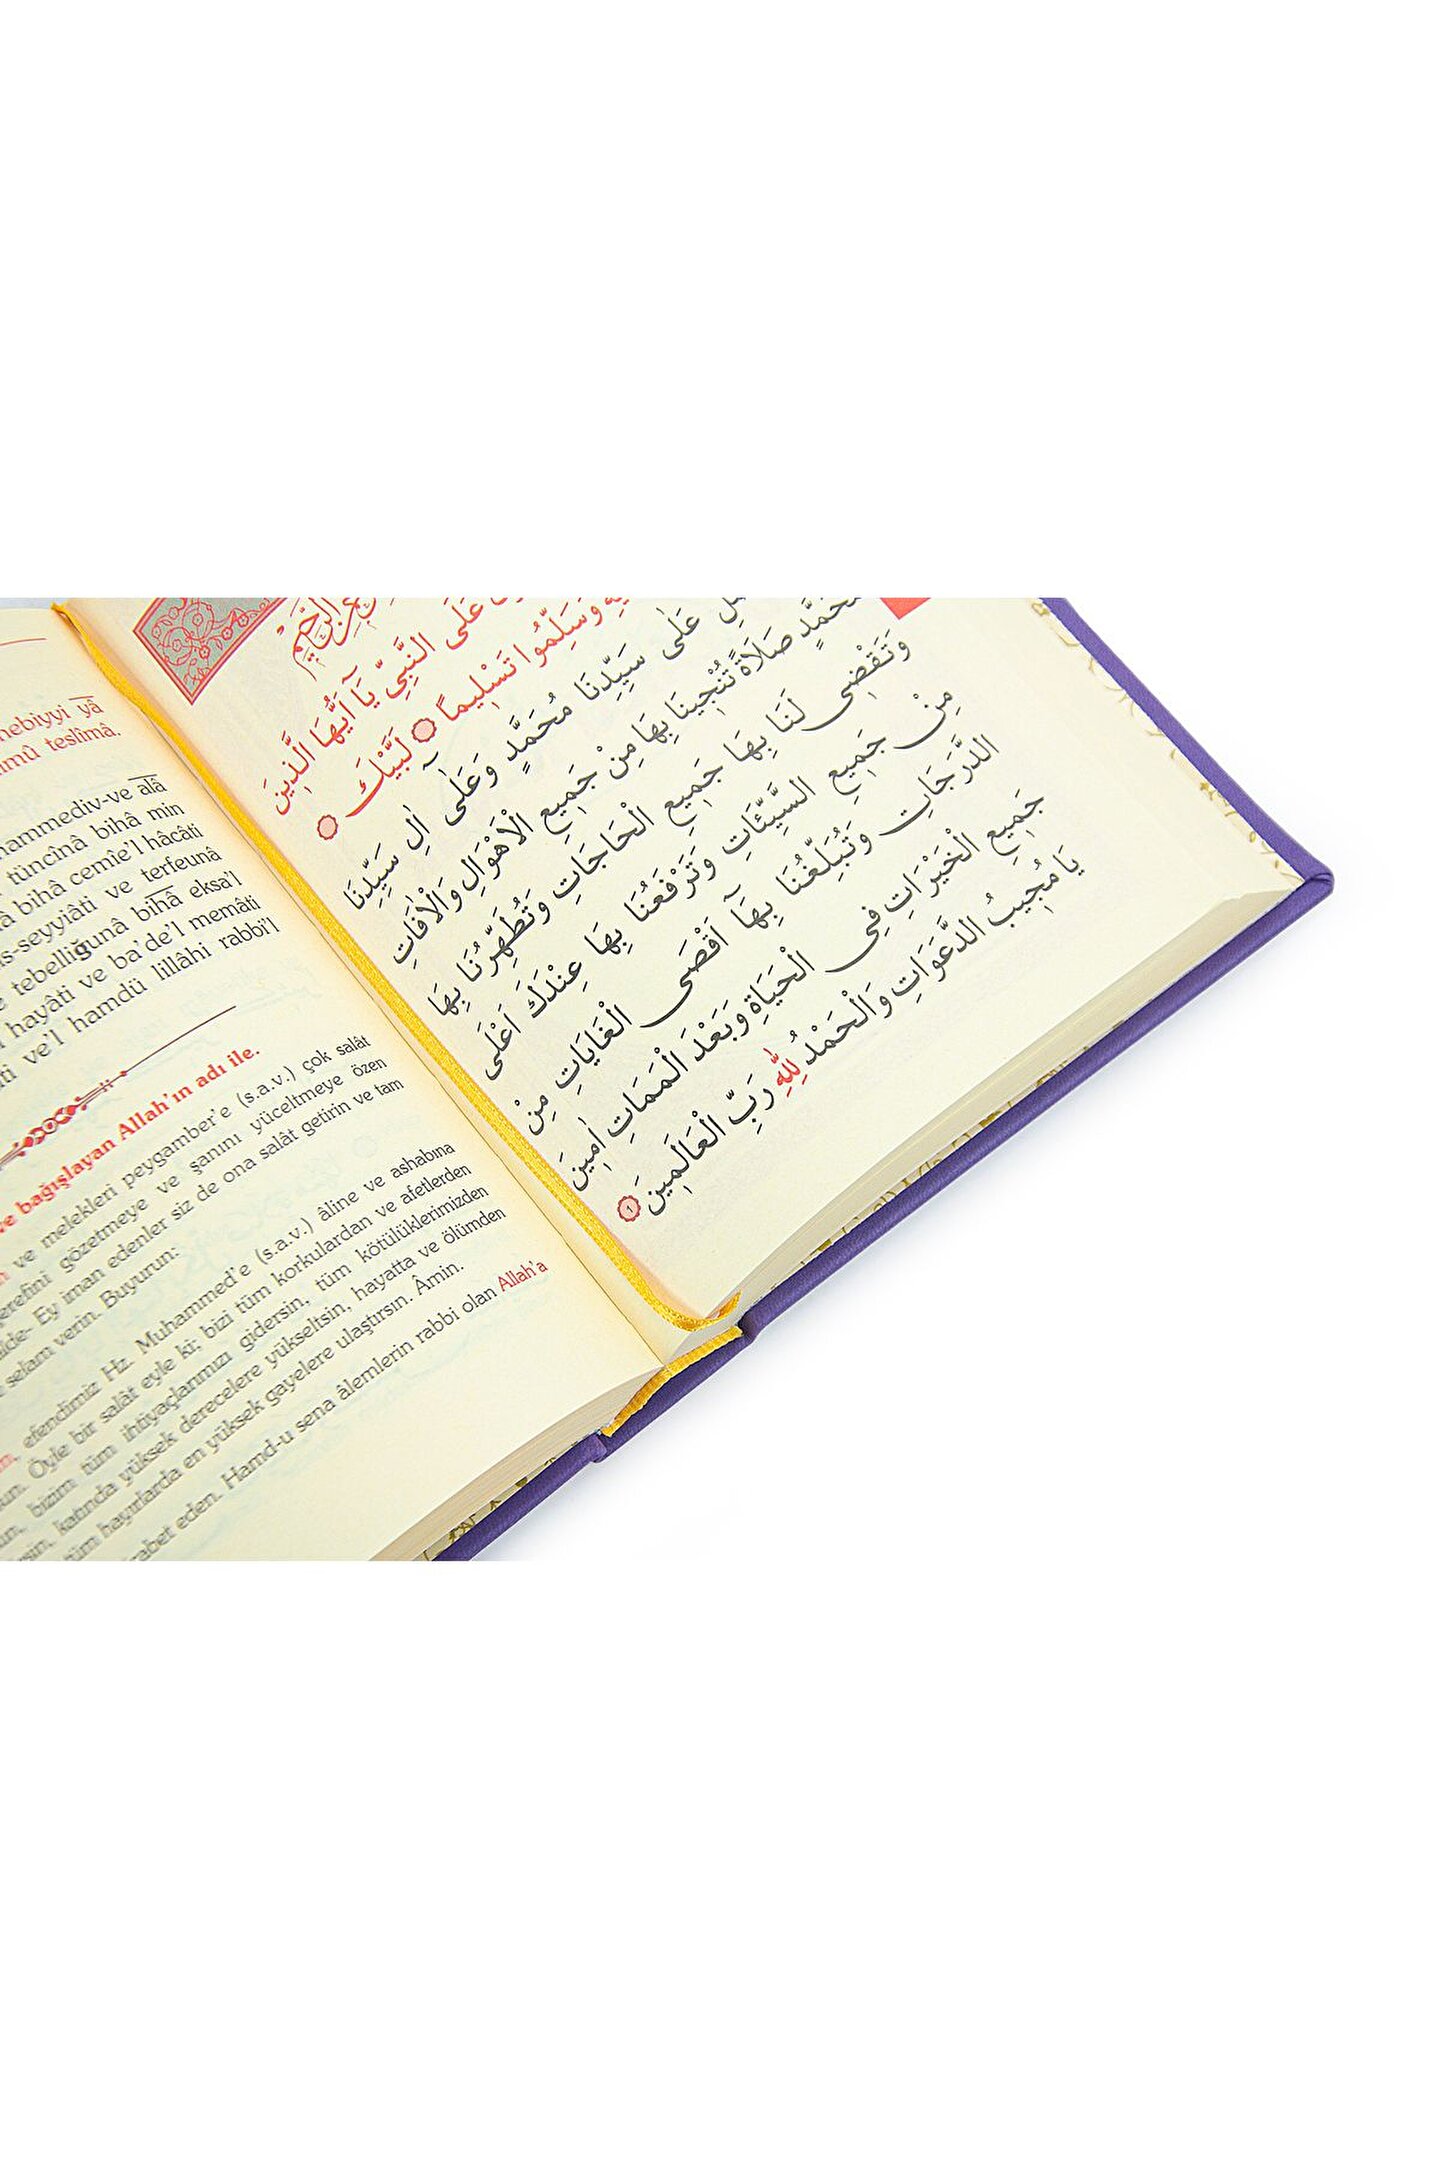 nebiyyi yâ
teslîmâ.
ve alâ
tüncînâ bihâ min
bihâ cemîe'l hâcâti
seyyiâti ve terfeunâ
tebelliğunâ bihâ eksa'l
hayâti ve ba'de'l memâti
ve'l hamdü lillâhi rabbi'l
ve bağışlayan Allah'ın adı ile.
ve melekleri peygamber'e (s.a.v.) çok salât
gözetmeye ve şanını yüceltmeye özen
Ey iman edenler siz de ona salât getirin ve tam
selam verin. Buyurun:
efendimiz Hz. Muhammed'e (s.a.v.) âline ve ashabına
Öyle bir salât eyle ki; bizi tüm korkulardan ve afetlerden
bizim tüm ihtiyaçlarımızı gidersin, tüm kötülüklerimizden
katında yüksek derecelere yükseltsin, hayatta ve ölümden
tüm hayırlarda en yüksek gayelere ulaştırsın. Âmin.
eden. Hamd-u sena âlemlerin rabbi olan Allah'a
عَلَى النَّبِيِّ يَآ اَيُّهَا الَّذِينَ
وَسَلِّمُوا تَسْلِيمًا لَبَّيْكَ
عَلٰى سَيِّدِنَا مُحَمَّدٍ وَعَلٰٓى اٰلِ سَيِّدِنَا
صَلَاةً تُنْجِينَا بِهَا مِنْ جَمِيعِ الْاَهْوَالِ وَالْاٰفَاتِ
وَتَقْضِى لَنَا بِهَا جَمِيعِ الْحَاجَاتِ وَتُطَهِّرُنَا بِهَا
مِنْ جَمِيعِ السَّيِّئَاتِ وَتَرْفَعُنَا بِهَا عِنْدَكَ اَعْلَى
الدَّرَجَاتِ وَتُبَلِّغُنَا بِهَآ اَقْصَى الْغَايَاتِ مِنْ
جَمِيعِ الْخَيْرَاتِ فِى الْحَيَاةِ وَبَعْدَ الْمَمَاتِ اٰمِينَ
يَا مُجِيبُ الدَّعَوَاتِ وَالْحَمْدُ لِلّٰهِ رَبِّ الْعَالَمِينَ ١